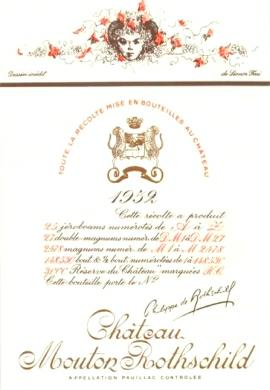 Dessin inédit de Léonor Fini
TOUTE LA RÉCOLTE MISE EN BOUTEILLES AU CHÂTEAU
1952
Cette récolte a produit
25 jéroboams numérotés de A à Z
27 double-magnums numér. de D.M. 1 à D.M. 27
de M 1 à M
bout. & ½ bout. numérotées de 1 à
"Réserve du Château" marquées R.C.
Cette bouteille porte le No
Philippe de Rothschild
Château
Mouton Rothschild
APPELLATION PAUILLAC CONTRÔLÉE